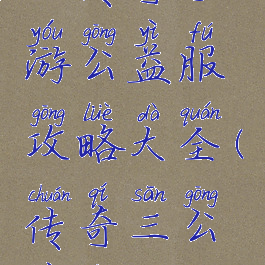 yóu gōng yì fú
游公益服
gōng lüè dà quán
攻略大全(
chuán qí sān gōng
传奇三公